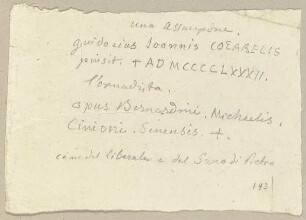 una assunzione.
guidocius Ioannis COZARELIS
pinsit. + A D MCCCCLXXXII.
Bernardini. Mechaelis.
opus
Cinioni. Senensis +.
come del liberale e del Sano di Pietro
142